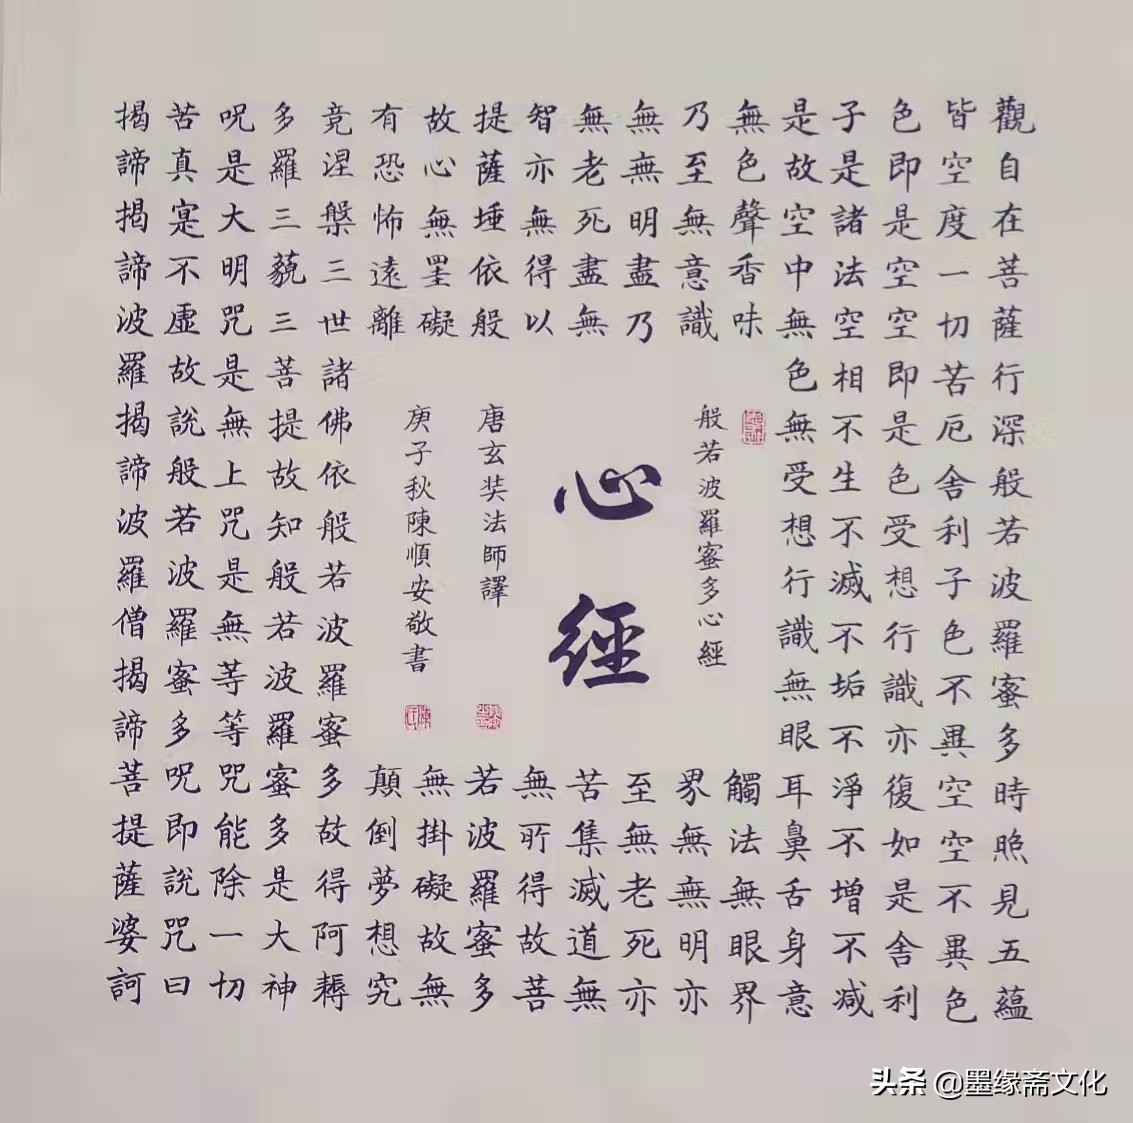 觀自在菩薩行深般若波羅蜜多時照見五蘊
皆空度一切苦厄舍利子色不異空空不異色
色即是空空即是色受想行識亦復如是舍利
子是諸法空相不生不滅不垢不淨不增不减
是故空中無色無受想行識無眼耳鼻舌身意
無色聲香味觸法無眼界
乃至無意識界無無明亦
無無明盡乃至無老死亦
無老死盡無苦集滅道無
智亦無得以無所得故菩
提薩埵依般若波羅蜜多
故心無罣礙無掛礙故無
有恐怖遠離顛倒夢想究
竟涅槃三世諸佛依般若波羅蜜多故得阿耨
多羅三藐三菩提故知般若波羅蜜多是大神
呪是大明咒是無上咒是無等等咒能除一切
苦真寔不虛故說般若波羅蜜多呪即說咒曰
揭諦揭諦波羅揭諦波羅僧揭諦菩提薩婆訶
般若波羅蜜多心經
心經
唐玄奘法師譯
庚子秋陳順安敬書
头条 @墨缘斋文化